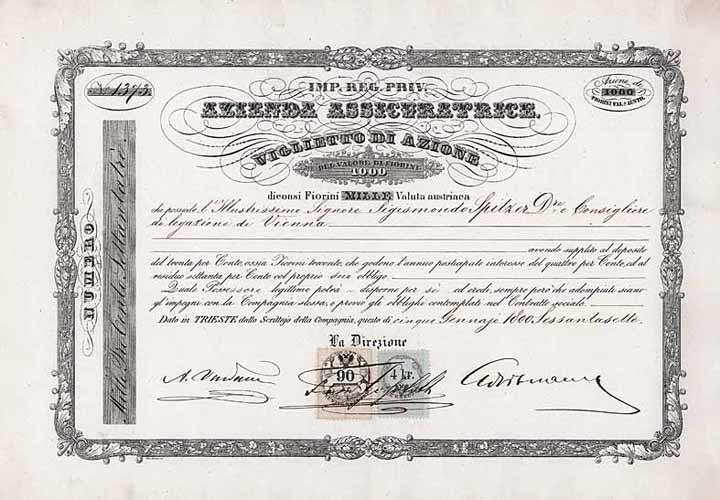 No. 1373.
Azione di
1000
FIORINI VAL. AUSTR.
IMP. REG. PRIV.
AZIENDA ASSICURATRICE.
VIGLIETTO DI AZIONE
DEL VALORE DI FIORINI
1000
diconsi Fiorini MILLE Valuta austriaca
che possiede l'Illustrissimo Signore Sigismondo Spitzer Dre. e Consigliere
di legazione di Vienna
avendo supplito al deposito
del trenta per Cento, ossia Fiorini trecento, che godono l'annuo posticipato interesse del quattro per Cento, ed al
residuo settanta per Cento col proprio suo obbligo.
Quale Possessore legittimo potrà disporne per sè ed eredi, sempre però che adempiute siano
gl'impegni con la Compagnia stessa, e previo gli obblighi contemplati nel Contratto sociale.
Dato in TRIESTE dallo Scrittojo della Compagnia, questo dì cinque Gennajo 1800, Sessantasette.
La Direzione
90
4 kr.
NUMERO
Mille Trecento Settantatrè